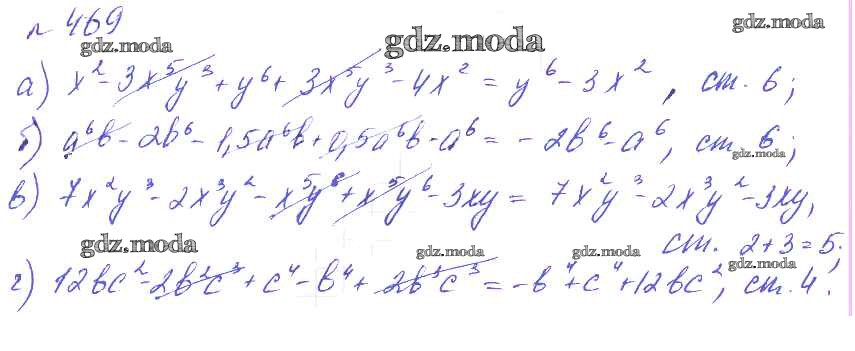 № 469
gdz.moda gdz.moda gdz.moda
а) x² - 3x⁵y³ + y⁶ + 3x⁵y³ - 4x² = y⁶ - 3x², ст. 6;
б) a⁶b - 2b⁶ - 1,5a⁶b + 0,5a⁶b - a⁶ = - 2b⁶ - a⁶, ст. 6;
gdz.moda
в) 7x²y³ - 2x³y² - x⁵y⁶ + x⁵y⁶ - 3xy = 7x²y³ - 2x³y² - 3xy,
ст. 2+3=5;
gdz.moda gdz.moda gdz.moda gdz.moda
г) 12bc² - 2b²c³ + c⁴ - b⁴ + 2b²c³ = -b⁴ + c⁴ + 12bc², ст. 4.